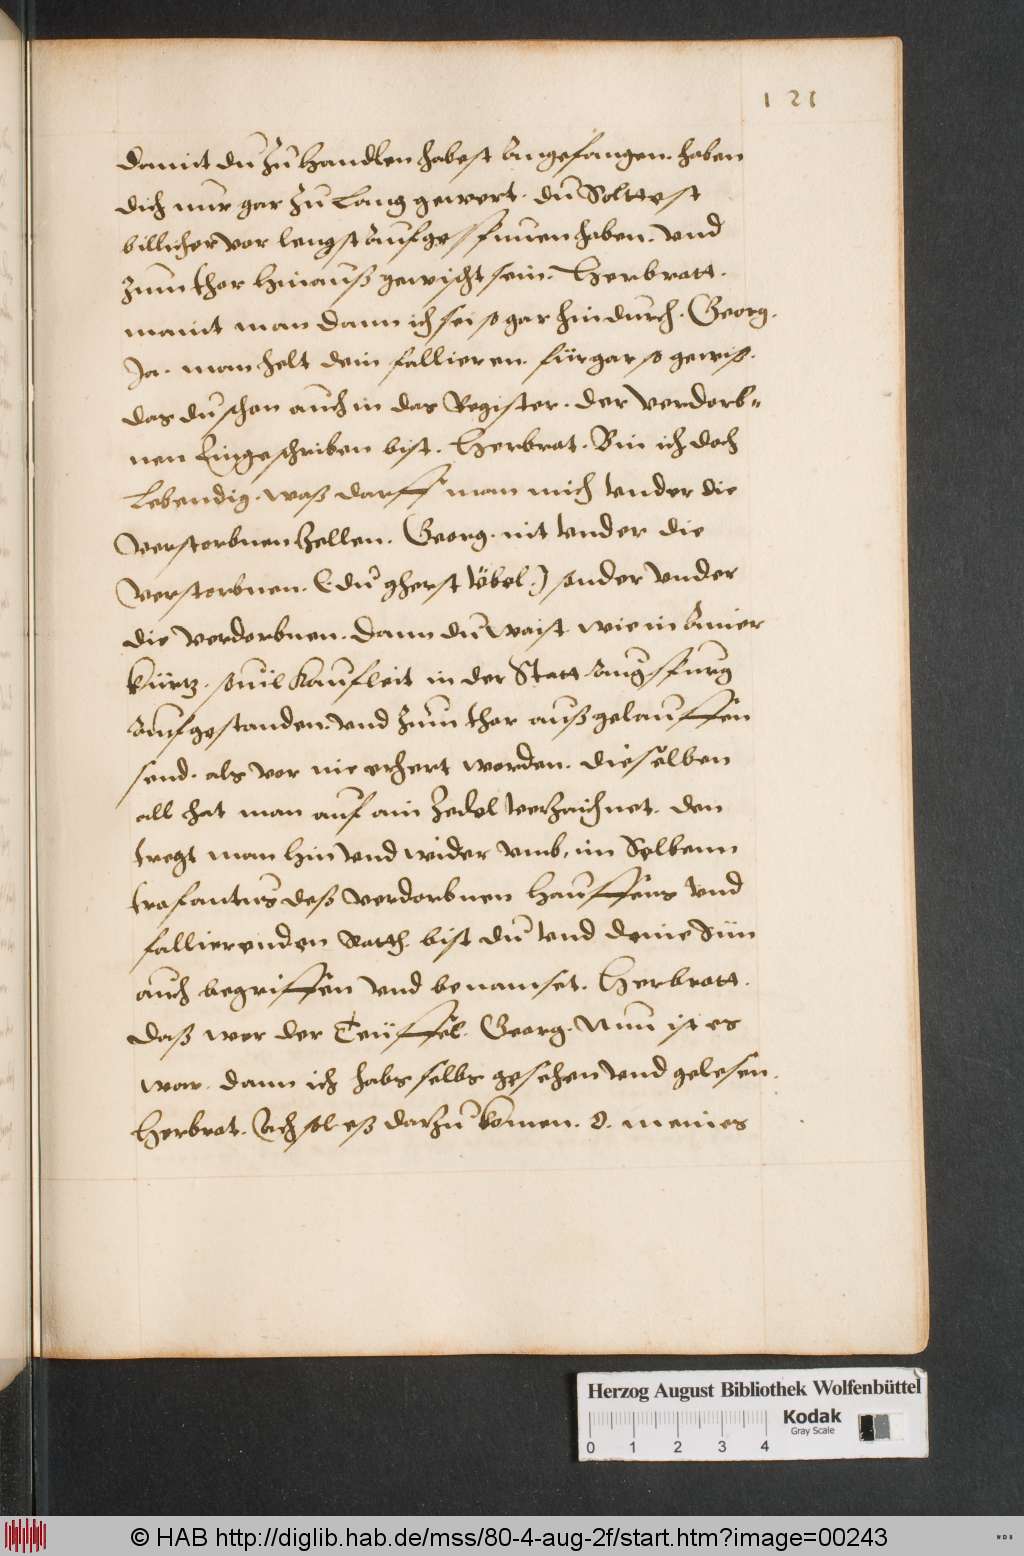 121
damit du zu handlen habest angefangen. haben
dich nur gar zu lang gewert. du Solttest
billicher vor lengst auf haben. vnd
zum thor hinauß gewischt sein. Herbratt.
maint man dann ich sei so gar hindurch. Georg.
Ja. man helt dein fallieren. für gar so gewiß.
das du schon auch in das Register. der verdorb=
nen Eingeschriben bist. Herbrat. Bin ich doch
Lebendig. waß darff man mich vnder die
verstorbnen zellen. Georg. nit vnder die
verstorbnen. (du gherst übel.) sonder vnder
die verdorbnen. dann du waist wie in ainer
kürtz. souil kaufleit in der Statt Augspurg
aufgestanden. vnd zum thor auß gelauffen
send. als vor nie erhert worden. dieselben
all hat man auf ain Zedel verzaichnet. den
tregt man hin vnd wider vmb, im Selbenn
deß verdorbnen hauffens vnd
fallierenden Rotth. bist du vnd deine Sün
auch begriffen vnd benamset. Herbratt.
daß wer der Teüffel. Georg. Nun ist es
war. dann ich habs selbs gesehen vnd gelesen.
Herbrat. Ach sol eß darzu komen. O. meines
Herzog August Bibliothek Wolfenbüttel
Kodak
Gray Scale
0 1 2 3 4
© HAB http://diglib.hab.de/mss/80-4-aug-2f/start.htm?image=00243